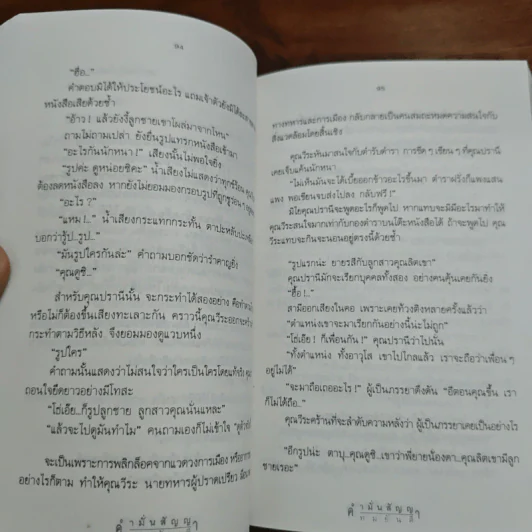 ๑๘
"ฮือ.."
คำตอบมิได้ให้ประโยชน์อะไร แถมเจ้าตัวยังมิได้
หนังสือเสียด้วยซ้ำ
"อ้าว! แล้วยังงี้ลูกชายเขาโผล่มาจากไหน"
ถามไม่ถามเปล่า ยังยื่นรูปแทรกหนังสือเข้ามา
"อะไรกันนักหนา!" เสียงนั้นไม่พอใจยิ่ง
"รูปค่ะ ดูหน่อยซิคะ" น้ำเสียงไม่แสดงว่าทุกข์ร้อน
ต้องลดหนังสือลง หากยังไม่ยอมมองกรอบรูปที่ถูก
"อะไร ?"
"แหม!.." น้ำเสียงกระแทกกระทั้น ตาปะหลับปะ
บอกว่ารู้ป..รูป.."
"มันรูปใครกันล่ะ" คำถามบอกชัดว่ารำคาญยิ่ง
"คุณดูซิ.."
สำหรับคุณปรานีนั้น จะกระทำได้สองอย่าง คือ
หรือไม่ก็ต้องขึ้นเสียงทะเลาะกัน คราวนี้คุณวีระออกจะ
กระทำตามวิธีหลัง จึงยอมมองดูแวบหนึ่ง
"รูปใคร"
คำถามนั้นแสดงว่าไม่สนใจว่าใครเป็นใครโดยแท้จริง
ถอนใจยืดยาวอย่างมีโทสะ
"โธ่เอ๊ย..ก็รูปลูกชาย ลูกสาวคุณนั่นแหละ"
"แล้วจะไปดูมันทำไม" คนถามเองก็ไม่เข้าใจ
จะเป็นเพราะการพลิกล็อคจากแวดวงการเมือง หรือ
อย่างไรก็ตาม ทำให้คุณวีระ นายทหารผู้ปราดเปรียว
คำมั่นสัญญา
ทางทหารและการเมือง กลับกลายเป็นคนสมถะหมดความสนใจกับ
สิ่งแวดล้อมโดยสิ้นเชิง
คุณวีระหันมาสนใจกับตำรับตำรา การขีด ๆ เขียน ๆ ที่คุณปรานี
เคยเจ็บแค้นนักหนา
"ไม่เห็นมันจะได้เบี้ยออกข้าวอะไรขึ้นมา ตำราฝรั่งก็แพงแสน
แพง พอเขียนจบส่งไปลง กลับฟรี!"
มิไยคุณปรานีจะพูดอะไรก็พูดไป หากแทบจะมิมีอะไรมาทำให้
คุณวีระสนใจมากเท่ากับกองตำราบนโต๊ะหนังสือได้ ถ้าจะพูดไป คุณ
วีระแทบจะกินจะนอนอยู่ตรงนี้ด้วยซ้ำ
"รูปแรกน่ะ ยายรสิกับลูกสาวคุณลิตเขา"
คุณปรานีมักจะเรียกบุคคลทั้งสอง อย่างคนคุ้นเคยกันยิ่ง
"ฮื้อ!.."
สามีออกเสียงในคอ เพราะเคยท้วงติงหลายครั้งแล้วว่า
"ตำแหน่งเขาจะมาเรียกกันอย่างนี้น่ะไม่ถูก"
"โธ่เอ๊ย! ก็เพื่อนกัน!" คุณปรานีว่าไปนั่น
"ทั้งตำแหน่ง ทั้งอาวุโส เขาไปไกลแล้ว เราจะถือว่าเพื่อน ๆ
อยู่ไม่ได้"
"จะมาถือเถออะไร!" ผู้เป็นภรรยาดึงดัน "อีตอนคุณขึ้น เรา
ก็ไม่ได้ถือ.."
คุณวีระคร้านที่จะลำดับความหลังว่า ผู้เป็นภรรยาเคยเป็นอย่างไร
"อีกรูปน่ะ ตาบุ..คุณดูซิ..เขาว่าพี่ยายน้องตา..คุณลิตเขามีลูก
ชายเรอะ"
คำมั่นสัญญา